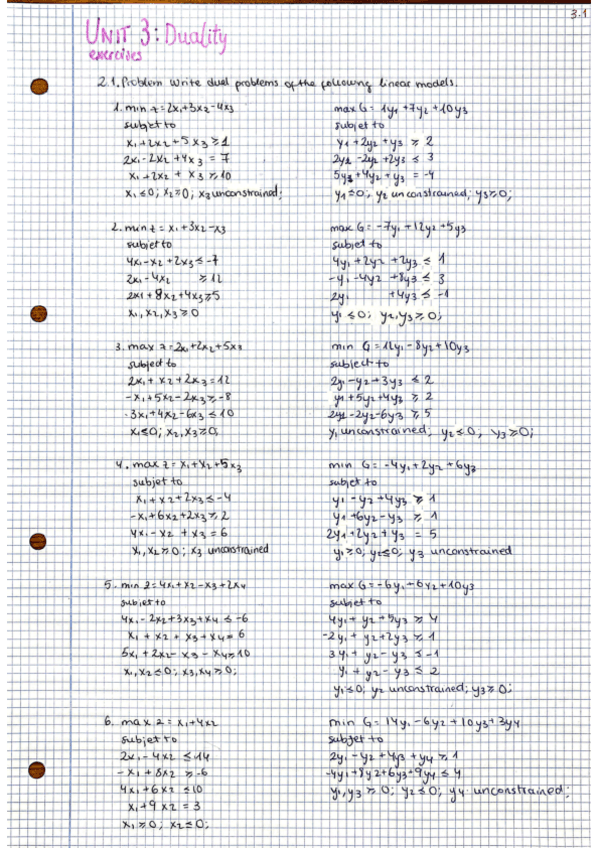 3.1
UNIT 3: Duality
exercises
2.1. Problem Write dual problems of the following linear models.
1. min z = 2x1+3x2-4x3
subjet to
x1+2x2+5x3 ≥ 1
2x1-2x2+4x3 = 7
x1+2x2 + x3 ≥ 10
x1 ≤ 0; x2 ≥ 0; x3 unconstrained;
max G = 1y1+7y2+10y3
subjet to
y1+2y2+y3 ≥ 2
2y1 -2y2+2y3 ≤ 3
5y1+4y2+y3 = -4
y1 ≥ 0; y2 unconstrained; y3 ≥ 0;
2. min z = x1+3x2-x3
subjet to
4x1-x2+2x3 ≤ -7
2x1-4x2 ≥ 12
2x1+8x2+4x3 ≥ 5
x1, x2, x3 ≥ 0
max G = -7y1+12y2+5y3
subjet to
4y1+2y2+2y3 ≤ 1
-y1-4y2+8y3 ≤ 3
2y1 +4y3 ≤ -1
y1 ≤ 0; y2, y3 ≥ 0;
3. max z = 2x1+2x2+5x3
subject to
2x1+x2+2x3 = 12
-x1+5x2-2x3 ≥ -8
-3x1+4x2-6x3 ≤ 10
x1 ≤ 0; x2, x3 ≥ 0;
min G = 12y1-8y2+10y3
subject to
2y1-y2+3y3 ≤ 2
y1+5y2+4y3 ≥ 2
2y1-2y2-6y3 ≥ 5
y1 unconstrained; y2 ≤ 0; y3 ≥ 0;
4. max z = x1+x2+5x3
subjet to
x1+x2+2x3 ≤ -4
-x1+6x2+2x3 ≥ 2
4x1-x2+x3 = 6
x1, x2 ≥ 0; x3 unconstrained
min G = -4y1+2y2+6y3
subjet to
y1-y2+4y3 ≥ 1
y1+6y2-y3 ≥ 1
2y1+2y2+y3 = 5
y1 ≥ 0; y2 ≤ 0; y3 unconstrained
5. min z = 4x1+x2-x3+2x4
subjet to
4x1-2x2+3x3+x4 ≤ -6
x1+x2+x3+x4 = 6
5x1+2x2-x3-x4 ≥ 10
x1, x2 ≤ 0; x3, x4 ≥ 0;
max G = -6y1+6y2+10y3
subjet to
4y1+y2+5y3 ≥ 4
-2y1+y2+2y3 ≥ 1
3y1+y2-y3 ≤ -1
y1+y2-y3 ≤ 2
y1 ≤ 0; y2 unconstrained; y3 ≥ 0;
6. max z = x1+4x2
subjet to
2x1-4x2 ≤ 14
-x1+8x2 ≥ -6
4x1+6x2 ≤ 10
x1+9x2 = 3
x1 ≥ 0; x2 ≤ 0;
min G = 14y1-6y2+10y3+3y4
subjet to
2y1-y2+4y3+y4 ≥ 1
-4y1+8y2+6y3+9y4 ≤ 4
y1, y3 ≥ 0; y2 ≤ 0; y4 unconstrained;